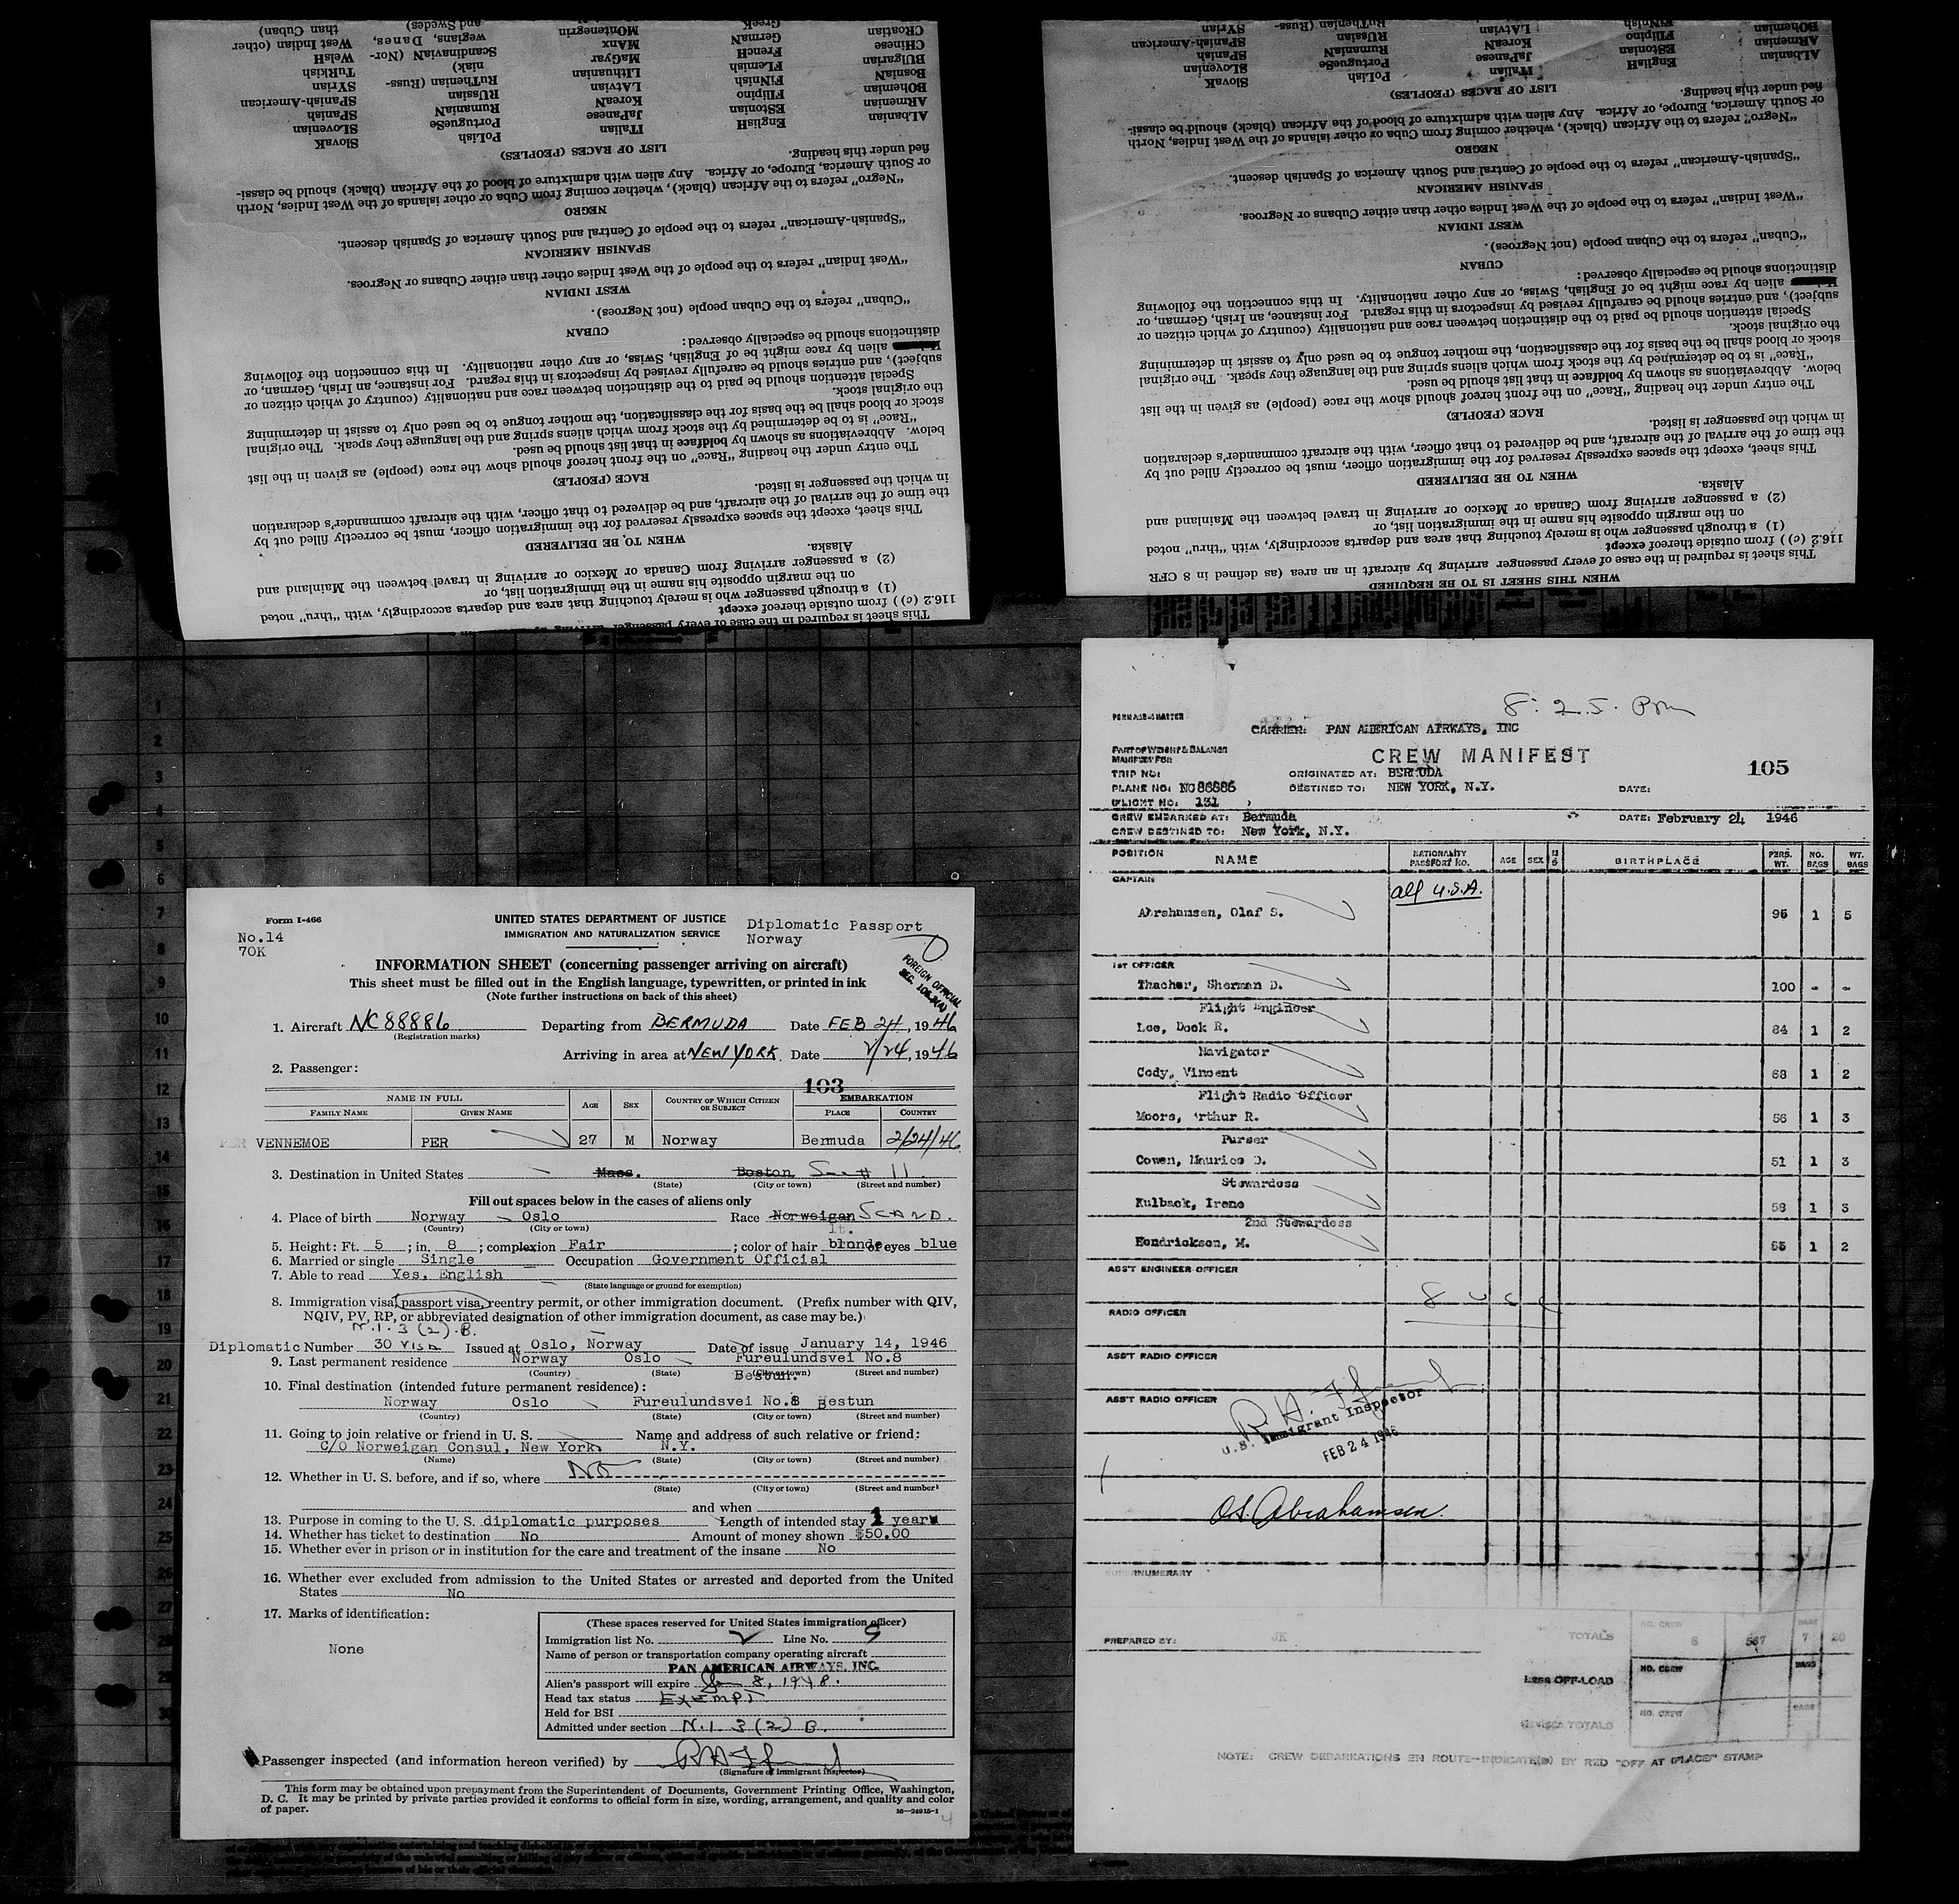 Form I-466
No.14
70K
UNITED STATES DEPARTMENT OF JUSTICE
IMMIGRATION AND NATURALIZATION SERVICE
Diplomatic Passport
Norway
FOREIGN OFFICIAL
INFORMATION SHEET (concerning passenger arriving on aircraft)
This sheet must be filled out in the English language, typewritten, or printed in ink
(Note further instructions on back of this sheet)
1. Aircraft NC88886 Departing from BERMUDA Date FEB 24, 1946
(Registration marks)
Arriving in area at NEW YORK Date 2/24, 1946
2. Passenger:
103
NAME IN FULL AGE SEX COUNTRY OF WHICH CITIZEN OR SUBJECT EMBARKATION
FAMILY NAME GIVEN NAME PLACE COUNTRY
VENNEMOE PER 27 M Norway Bermuda 2/24/46
3. Destination in United States Mass. Boston
(State) (City or town) (Street and number)
Fill out spaces below in the cases of aliens only
4. Place of birth Norway Oslo Race Norweigan SCAND.
(Country) (City or town)
lt.
5. Height: Ft. 5; in. 8; complexion Fair; color of hair blonde of eyes blue
6. Married or single Single Occupation Government Official
7. Able to read Yes, English
(State language or ground for exemption)
8. Immigration visa, passport visa, reentry permit, or other immigration document. (Prefix number with QIV,
NQIV, PV, RP, or abbreviated designation of other immigration document, as case may be.)
N.1. 3 (2). B.
Diplomatic Number 30 VISA Issued at Oslo, Norway Date of issue January 14, 1946
9. Last permanent residence Norway Oslo Fureulundsvei No.8
(Country) (State) (City or town) (Street and number)
Bestun.
10. Final destination (intended future permanent residence):
Norway Oslo Fureulundsvei No.8 Bestun
(Country) (State) (City or town) (Street and number)
11. Going to join relative or friend in U. S. Name and address of such relative or friend:
C/O Norweigan Consul, New York, N.Y.
(Name) (State) (City or town) (Street and number)
12. Whether in U. S. before, and if so, where No
(State) (City or town) (Street and number)
and when
13. Purpose in coming to the U. S. diplomatic purposes Length of intended stay 1 year
14. Whether has ticket to destination No Amount of money shown $50.00
15. Whether ever in prison or in institution for the care and treatment of the insane No
16. Whether ever excluded from admission to the United States or arrested and deported from the United
States No
17. Marks of identification:
None
(These spaces reserved for United States immigration officer)
Immigration list No. 2 Line No. 9
Name of person or transportation company operating aircraft
PAN AMERICAN AIRWAYS, INC.
Alien's passport will expire Jan 8, 1948.
Head tax status EXEMPT
Held for BSI
Admitted under section N.1. 3 (2) B.
Passenger inspected (and information hereon verified) by
(Signature of Immigrant Inspector)
This form may be obtained upon prepayment from the Superintendent of Documents, Government Printing Office, Washington,
D. C. It may be printed by private parties provided it conforms to official form in size, wording, arrangement, and quality and color
of paper.
16—24915-1
8:25 Pm
CARRIER: PAN AMERICAN AIRWAYS, INC
CREW MANIFEST
105
PART OF WEIGHT & BALANCE
MANIFEST FOR
TRIP NO: ORIGINATED AT: BERMUDA
PLANE NO: NC88886 DESTINED TO: NEW YORK, N.Y. DATE:
FLIGHT NO: 131
CREW EMBARKED AT: Bermuda DATE: February 24 1946
CREW DESTINED TO: New York, N.Y.
POSITION NAME NATIONALITY PASSPORT NO. AGE SEX BIRTHPLACE PERS. WT. NO. BAGS WT. BAGS
CAPTAIN
all U.S.A.
Abrahamsen, Olaf S. 95 1 5
1ST OFFICER
Thacher, Sherman D. 100 - -
Flight Engineer
Lee, Dock R. 84 1 2
Navigator
Cody, Vincent 68 1 2
Flight Radio Officer
Moors, Arthur R. 56 1 3
Purser
Cowen, Maurice D. 51 1 3
Stewardess
Kulback, Irene 58 1 3
2nd Stewardess
Hendrickson, M. 55 1 2
ASS'T ENGINEER OFFICER
8 USC
RADIO OFFICER
ASS'T RADIO OFFICER
ASS'T RADIO OFFICER
U.S. Immigrant Inspector
FEB 24 1946
O.S. Abrahamsen.
SUPERNUMERARY
PREPARED BY: JK TOTALS NO. CREW 8 567 BAGS 7 20
Less OFF-LOAD NO. CREW BAGS
REVISED TOTALS NO. CREW BAGS
NOTE: CREW DEBARKATIONS EN ROUTE--INDICATE(D) BY RED "OFF AT (PLACE)" STAMP
This sheet is required in the case of every passenger arriving by
116.2 (c)) from outside thereof except
(1) a through passenger who is merely touching that area and departs accordingly, with "thru" noted
on the margin opposite his name in the immigration list, or
(2) a passenger arriving from Canada or Mexico or arriving in travel between the Mainland and
Alaska.
WHEN TO BE DELIVERED
This sheet, except the spaces expressly reserved for the immigration officer, must be correctly filled out by
the time of the arrival of the aircraft, and be delivered to that officer, with the aircraft commander's declaration
in which the passenger is listed.
RACE (PEOPLE)
The entry under the heading "Race" on the front hereof should show the race (people) as given in the list
below. Abbreviations as shown by boldface in that list should be used.
"Race" is to be determined by the stock from which aliens spring and the language they speak. The original
stock or blood shall be the basis for the classification, the mother tongue to be used only to assist in determining
the original stock.
Special attention should be paid to the distinction between race and nationality (country of which citizen or
subject), and entries should be carefully revised by inspectors in this regard. For instance, an Irish, German, or
alien by race might be of English, Swiss, or any other nationality. In this connection the following
distinctions should be especially observed:
CUBAN
"Cuban" refers to the Cuban people (not Negroes).
WEST INDIAN
"West Indian" refers to the people of the West Indies other than either Cubans or Negroes.
SPANISH AMERICAN
"Spanish-American" refers to the people of Central and South America of Spanish descent.
NEGRO
"Negro" refers to the African (black), whether coming from Cuba or other islands of the West Indies, North
or South America, Europe, or Africa. Any alien with admixture of blood of the African (black) should be classi-
fied under this heading.
LIST OF RACES (PEOPLES)
ALbanian EngLisH ITalian PoLish SlovaK
ARmenian EStonian JaPanese PortugueSe SLOvenian
BOhemian FIlipino KoreaN RumaniaN SPanish
BosniaN FiNnish LAtvian RUssian SPanish-American
BUlgarian FLemish LIthuanian RuThenian (Russ- SYrian
CHinese FrencH MaGyar niak) TuRkish
CRoatian GermaN MAnx ScandinaviaN (Nor- WelsH
GreeK MOntenegrin wegians, Danes, West Indian (other
and Swedes) than Cuban)
WHEN THIS SHEET IS TO BE REQUIRED
This sheet is required in the case of every passenger arriving by aircraft in an area (as defined in 8 CFR
116.2 (c)) from outside thereof except
(1) a through passenger who is merely touching that area and departs accordingly, with "thru" noted
on the margin opposite his name in the immigration list, or
(2) a passenger arriving from Canada or Mexico or arriving in travel between the Mainland and
Alaska.
WHEN TO BE DELIVERED
This sheet, except the spaces expressly reserved for the immigration officer, must be correctly filled out by
the time of the arrival of the aircraft, and be delivered to that officer, with the aircraft commander's declaration
in which the passenger is listed.
RACE (PEOPLE)
The entry under the heading "Race" on the front hereof should show the race (people) as given in the list
below. Abbreviations as shown by boldface in that list should be used.
"Race" is to be determined by the stock from which aliens spring and the language they speak. The original
stock or blood shall be the basis for the classification, the mother tongue to be used only to assist in determining
the original stock.
Special attention should be paid to the distinction between race and nationality (country of which citizen or
subject), and entries should be carefully revised by inspectors in this regard. For instance, an Irish, German, or
alien by race might be of English, Swiss, or any other nationality. In this connection the following
distinctions should be especially observed:
CUBAN
"Cuban" refers to the Cuban people (not Negroes).
WEST INDIAN
"West Indian" refers to the people of the West Indies other than either Cubans or Negroes.
SPANISH AMERICAN
"Spanish-American" refers to the people of Central and South America of Spanish descent.
NEGRO
"Negro" refers to the African (black), whether coming from Cuba or other islands of the West Indies, North
or South America, Europe, or Africa. Any alien with admixture of blood of the African (black) should be classi-
fied under this heading.
LIST OF RACES (PEOPLES)
ALbanian EngLisH ITalian PoLish SlovaK
ARmenian EStonian JaPanese PortugueSe SLOvenian
BOhemian FIlipino KoreaN RumaniaN SPanish
FiNnish LAtvian RUssian SPanish-American
RuThenian (Russ- SYrian